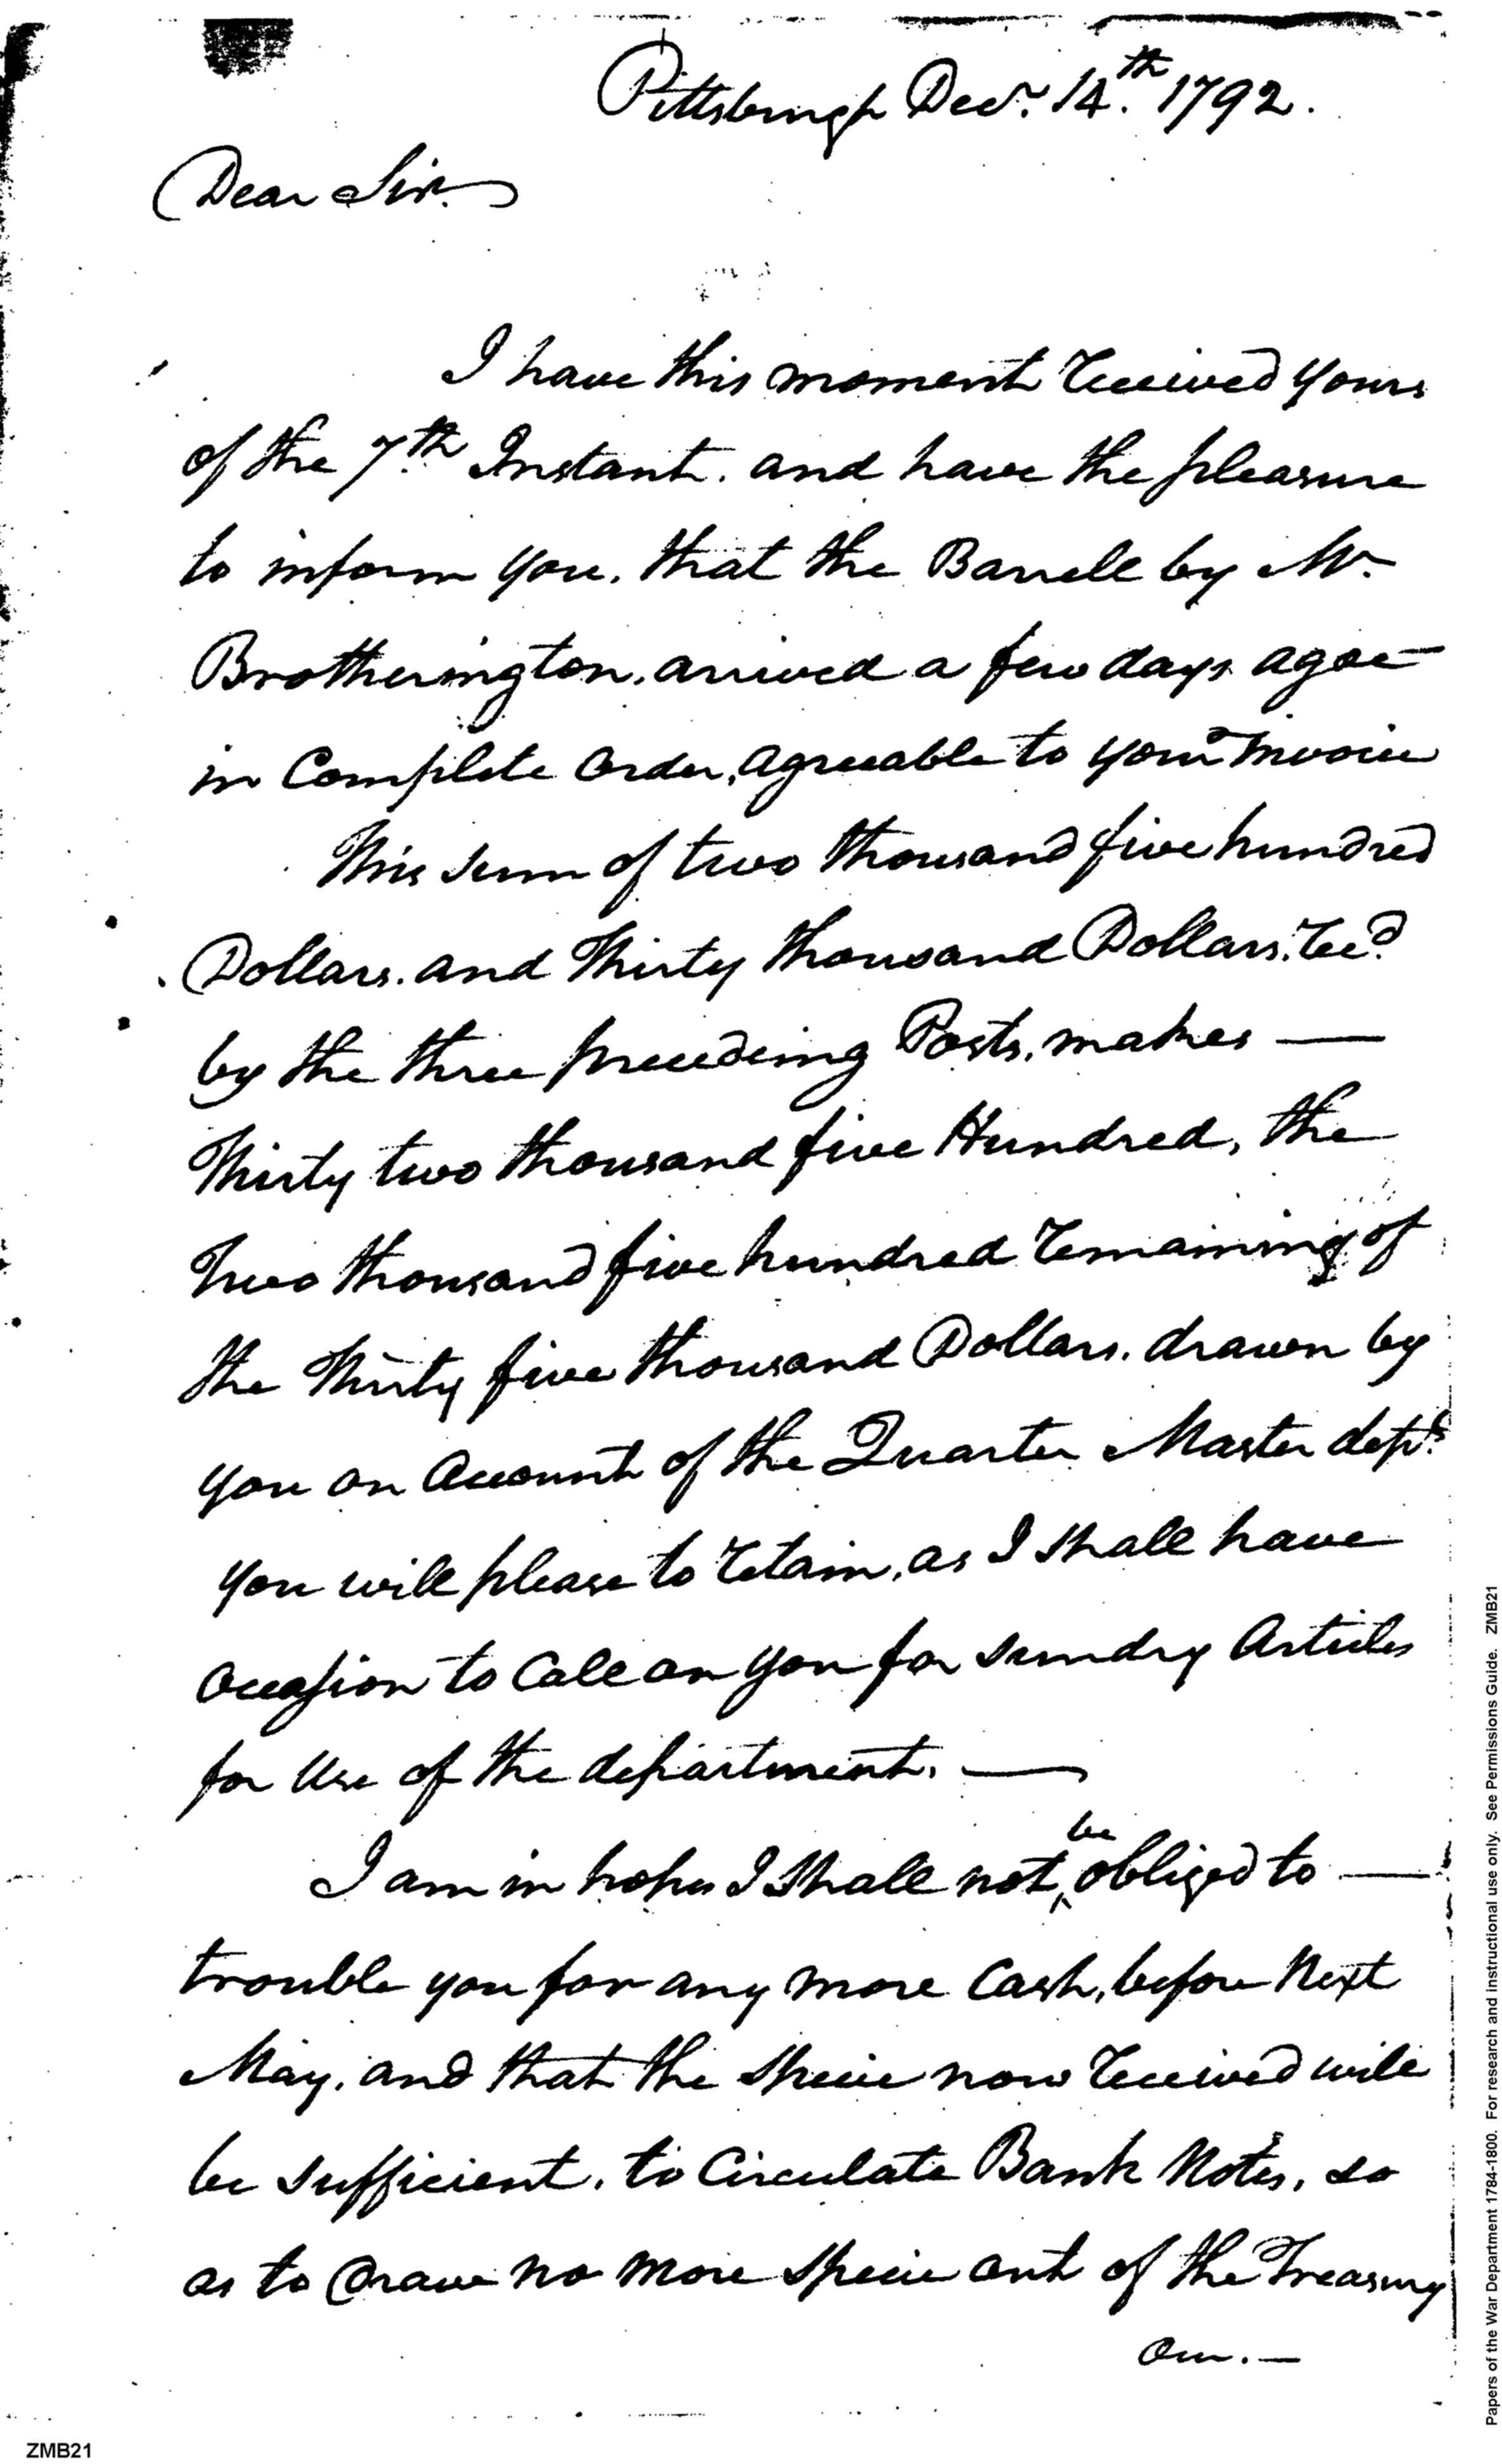 Pittsburgh Decr. 14.th 1792.
Dear Sir.
I have this moment received yours
of the 7th Instant. and have the pleasure
to inform you, that the Barrell by Mr.
Brotherington, arrived a few days agoe
in Complete Order, agreeable to your invoice
This sum of two thousand five hundred
Dollars. and Thirty thousand Dollars. recd.
by the three preceeding Posts, makes —
Thirty two thousand five Hundred, the
Two thousand five hundred remaining of
the Thirty five thousand Dollars. drawn by
you on Account of the Quarter Master dept.
you will please to retain, as I shall have
Occasion to Call on you for sundry Articles
for Use of the department. —
I am in hopes I shall not be obliged to —
trouble you for any more Cash, before Next
May, and that the specie now received will
be sufficient, to Circulate Bank Notes, so
as to draw no more specie out of the Treasury
Our. —
ZMB21
Papers of the War Department 1784-1800. For research and instructional use only. See Permissions Guide. ZMB21